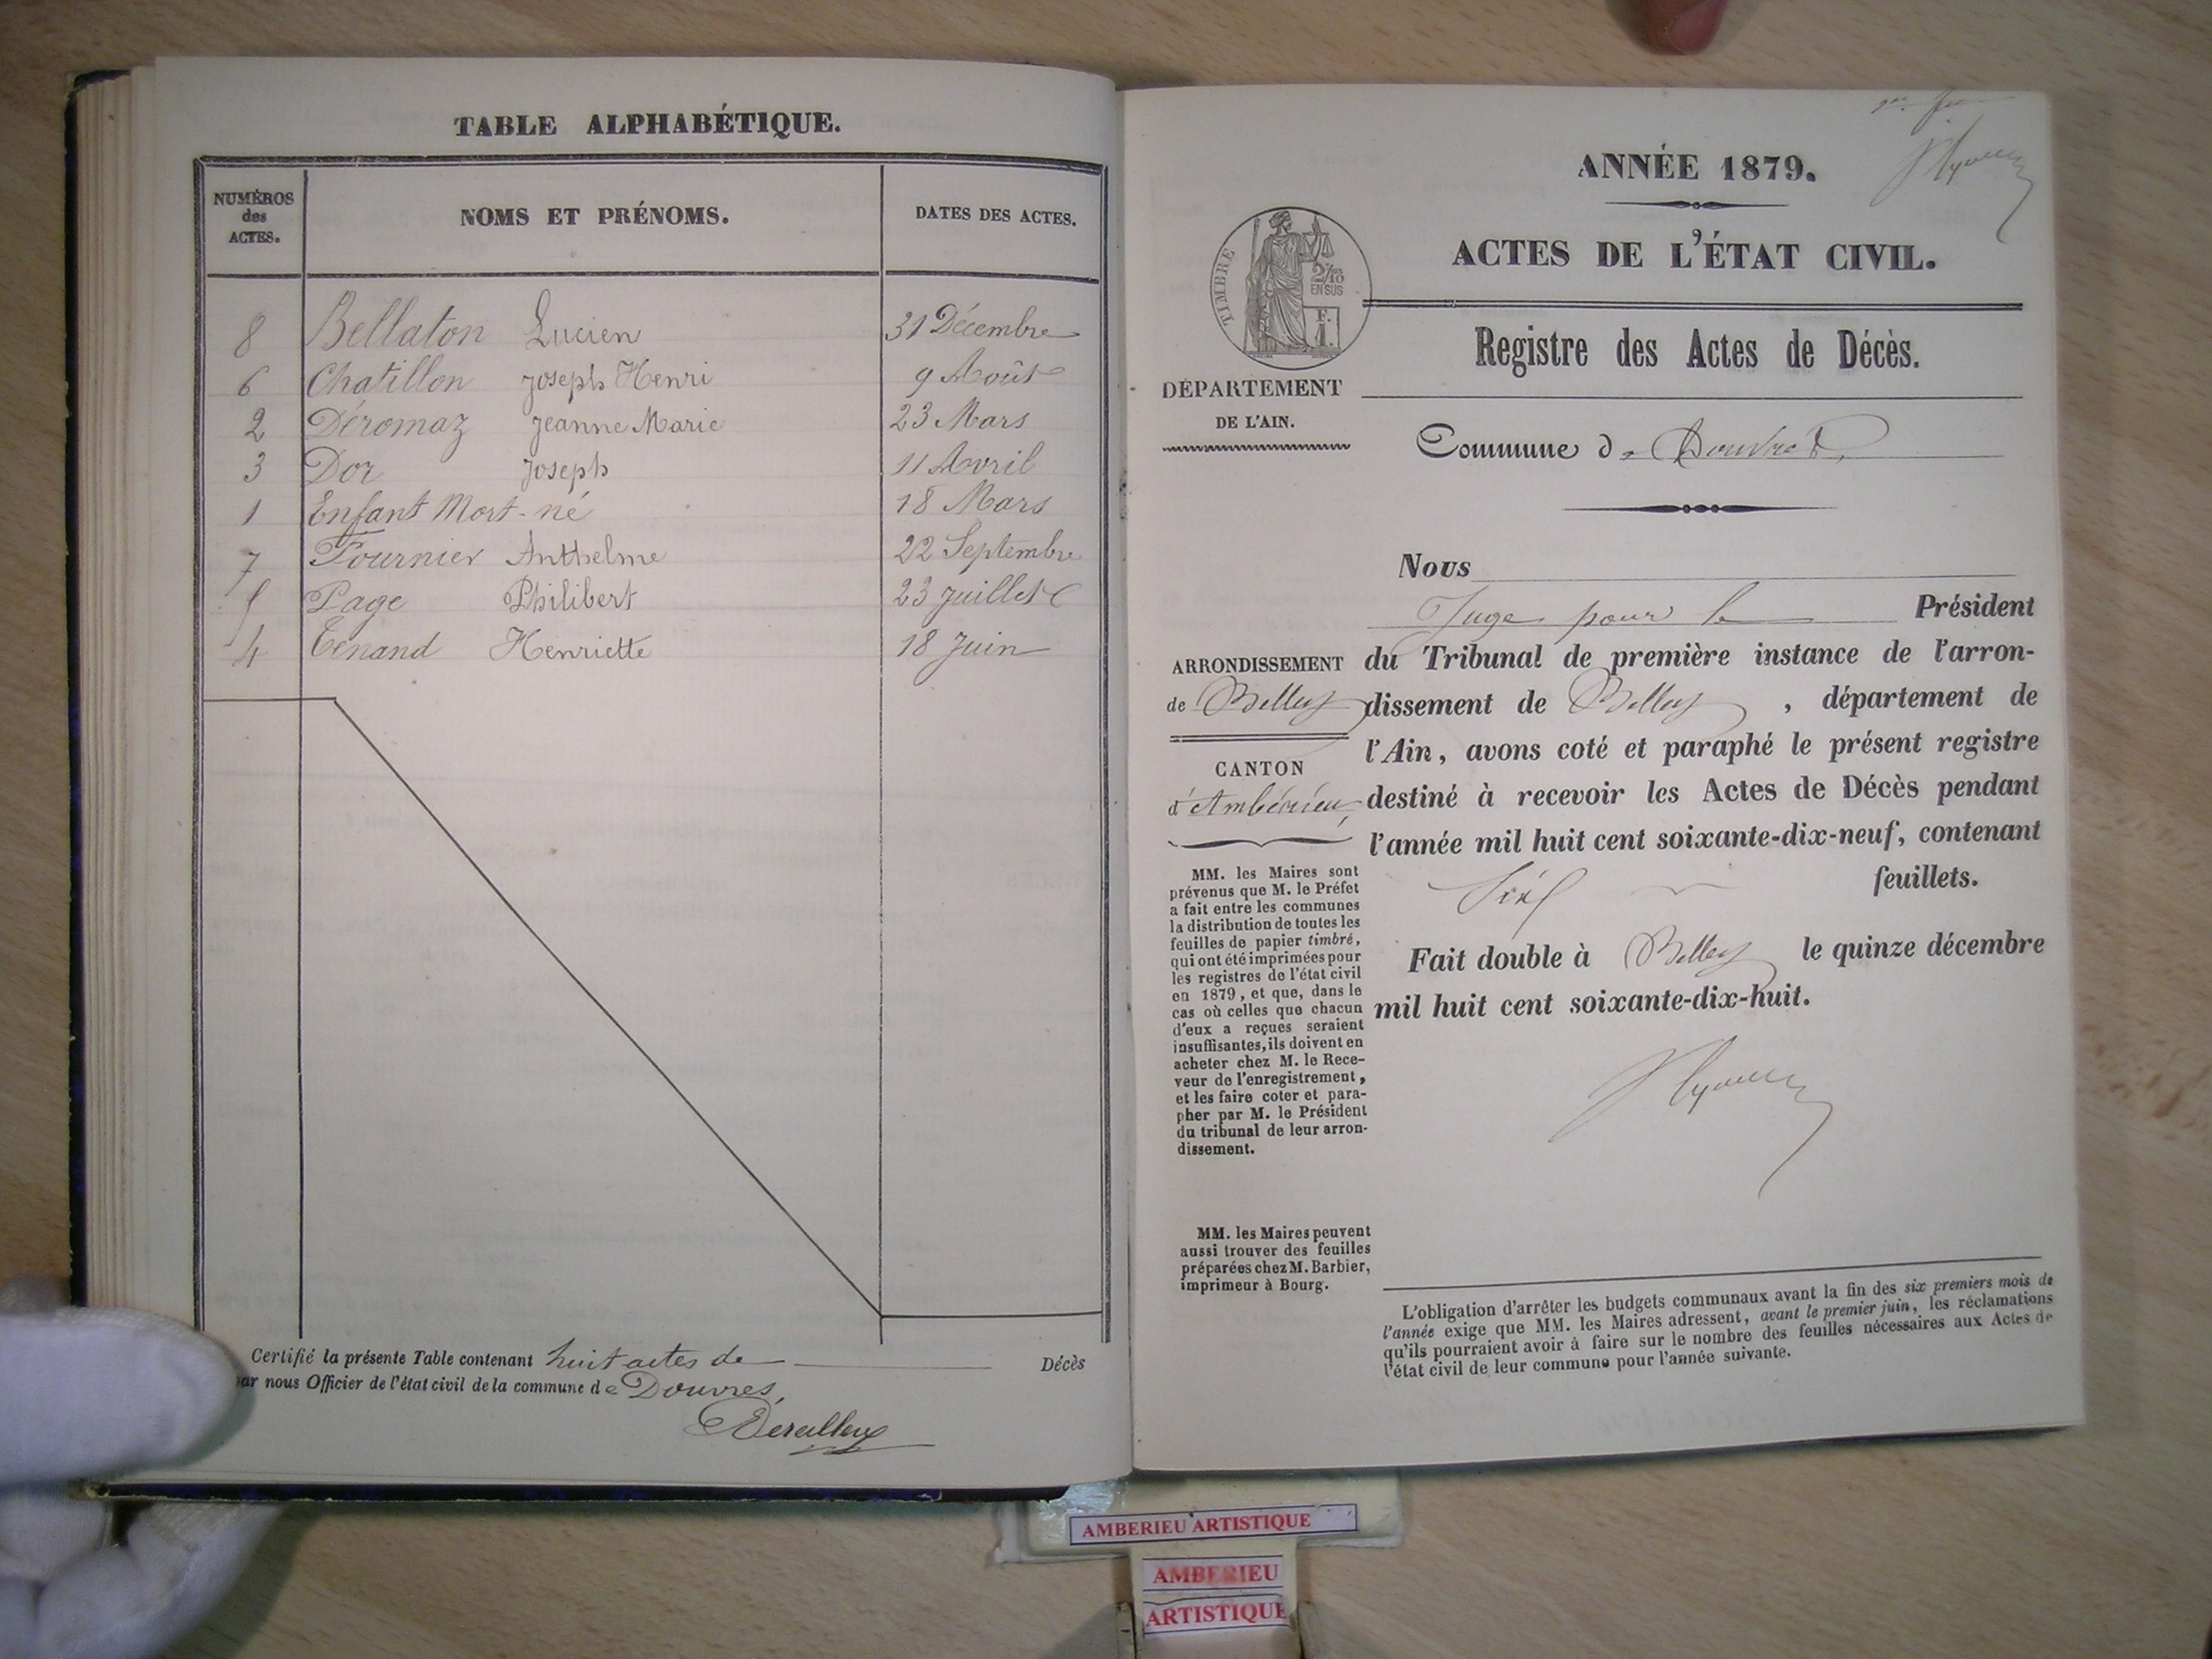 TABLE ALPHABÉTIQUE.
NUMÉROS
des
ACTES.
NOMS ET PRÉNOMS.
DATES DES ACTES.
8 Bellaton Lucien 31 Décembre
6 Chatillon Joseph Henri 9 Août
2 Déromaz Jeanne Marie 23 Mars
3 Dor Joseph 11 Avril
1 Enfant Mort-né 18 Mars
7 Fournier Anthelme 22 Septembre
5 Page Philibert 23 Juillet
4 Tenand Henriette 18 Juin
Certifié la présente Table contenant huit actes de Décès
par nous Officier de l'état civil de la commune de Douvres,
ANNÉE 1879.
ACTES DE L'ÉTAT CIVIL.
TIMBRE
2/10
EN SUS
F.
1.
Registre des Actes de Décès.
DÉPARTEMENT
DE L'AIN.
Commune de Douvres
Nous
Juge pour le Président
du Tribunal de première instance de l'arron-
dissement de Belley, département de
l'Ain, avons coté et paraphé le présent registre
destiné à recevoir les Actes de Décès pendant
l'année mil huit cent soixante-dix-neuf, contenant
feuillets.
Fait double à Belley le quinze décembre
mil huit cent soixante-dix-huit.
ARRONDISSEMENT
de Belley
CANTON
d'Ambérieu,
MM. les Maires sont
prévenus que M. le Préfet
a fait entre les communes
la distribution de toutes les
feuilles de papier timbré,
qui ont été imprimées pour
les registres de l'état civil
en 1879, et que, dans le
cas où celles que chacun
d'eux a reçues seraient
insuffisantes, ils doivent en
acheter chez M. le Rece-
veur de l'enregistrement,
et les faire coter et para-
pher par M. le Président
du tribunal de leur arron-
dissement.
MM. les Maires peuvent
aussi trouver des feuilles
préparées chez M. Barbier,
imprimeur à Bourg.
L'obligation d'arrêter les budgets communaux avant la fin des six premiers mois de
l'année exige que MM. les Maires adressent, avant le premier juin, les réclamations
qu'ils pourraient avoir à faire sur le nombre des feuilles nécessaires aux Actes de
l'état civil de leur commune pour l'année suivante.
AMBERIEU ARTISTIQUE
AMBERIEU
ARTISTIQUE